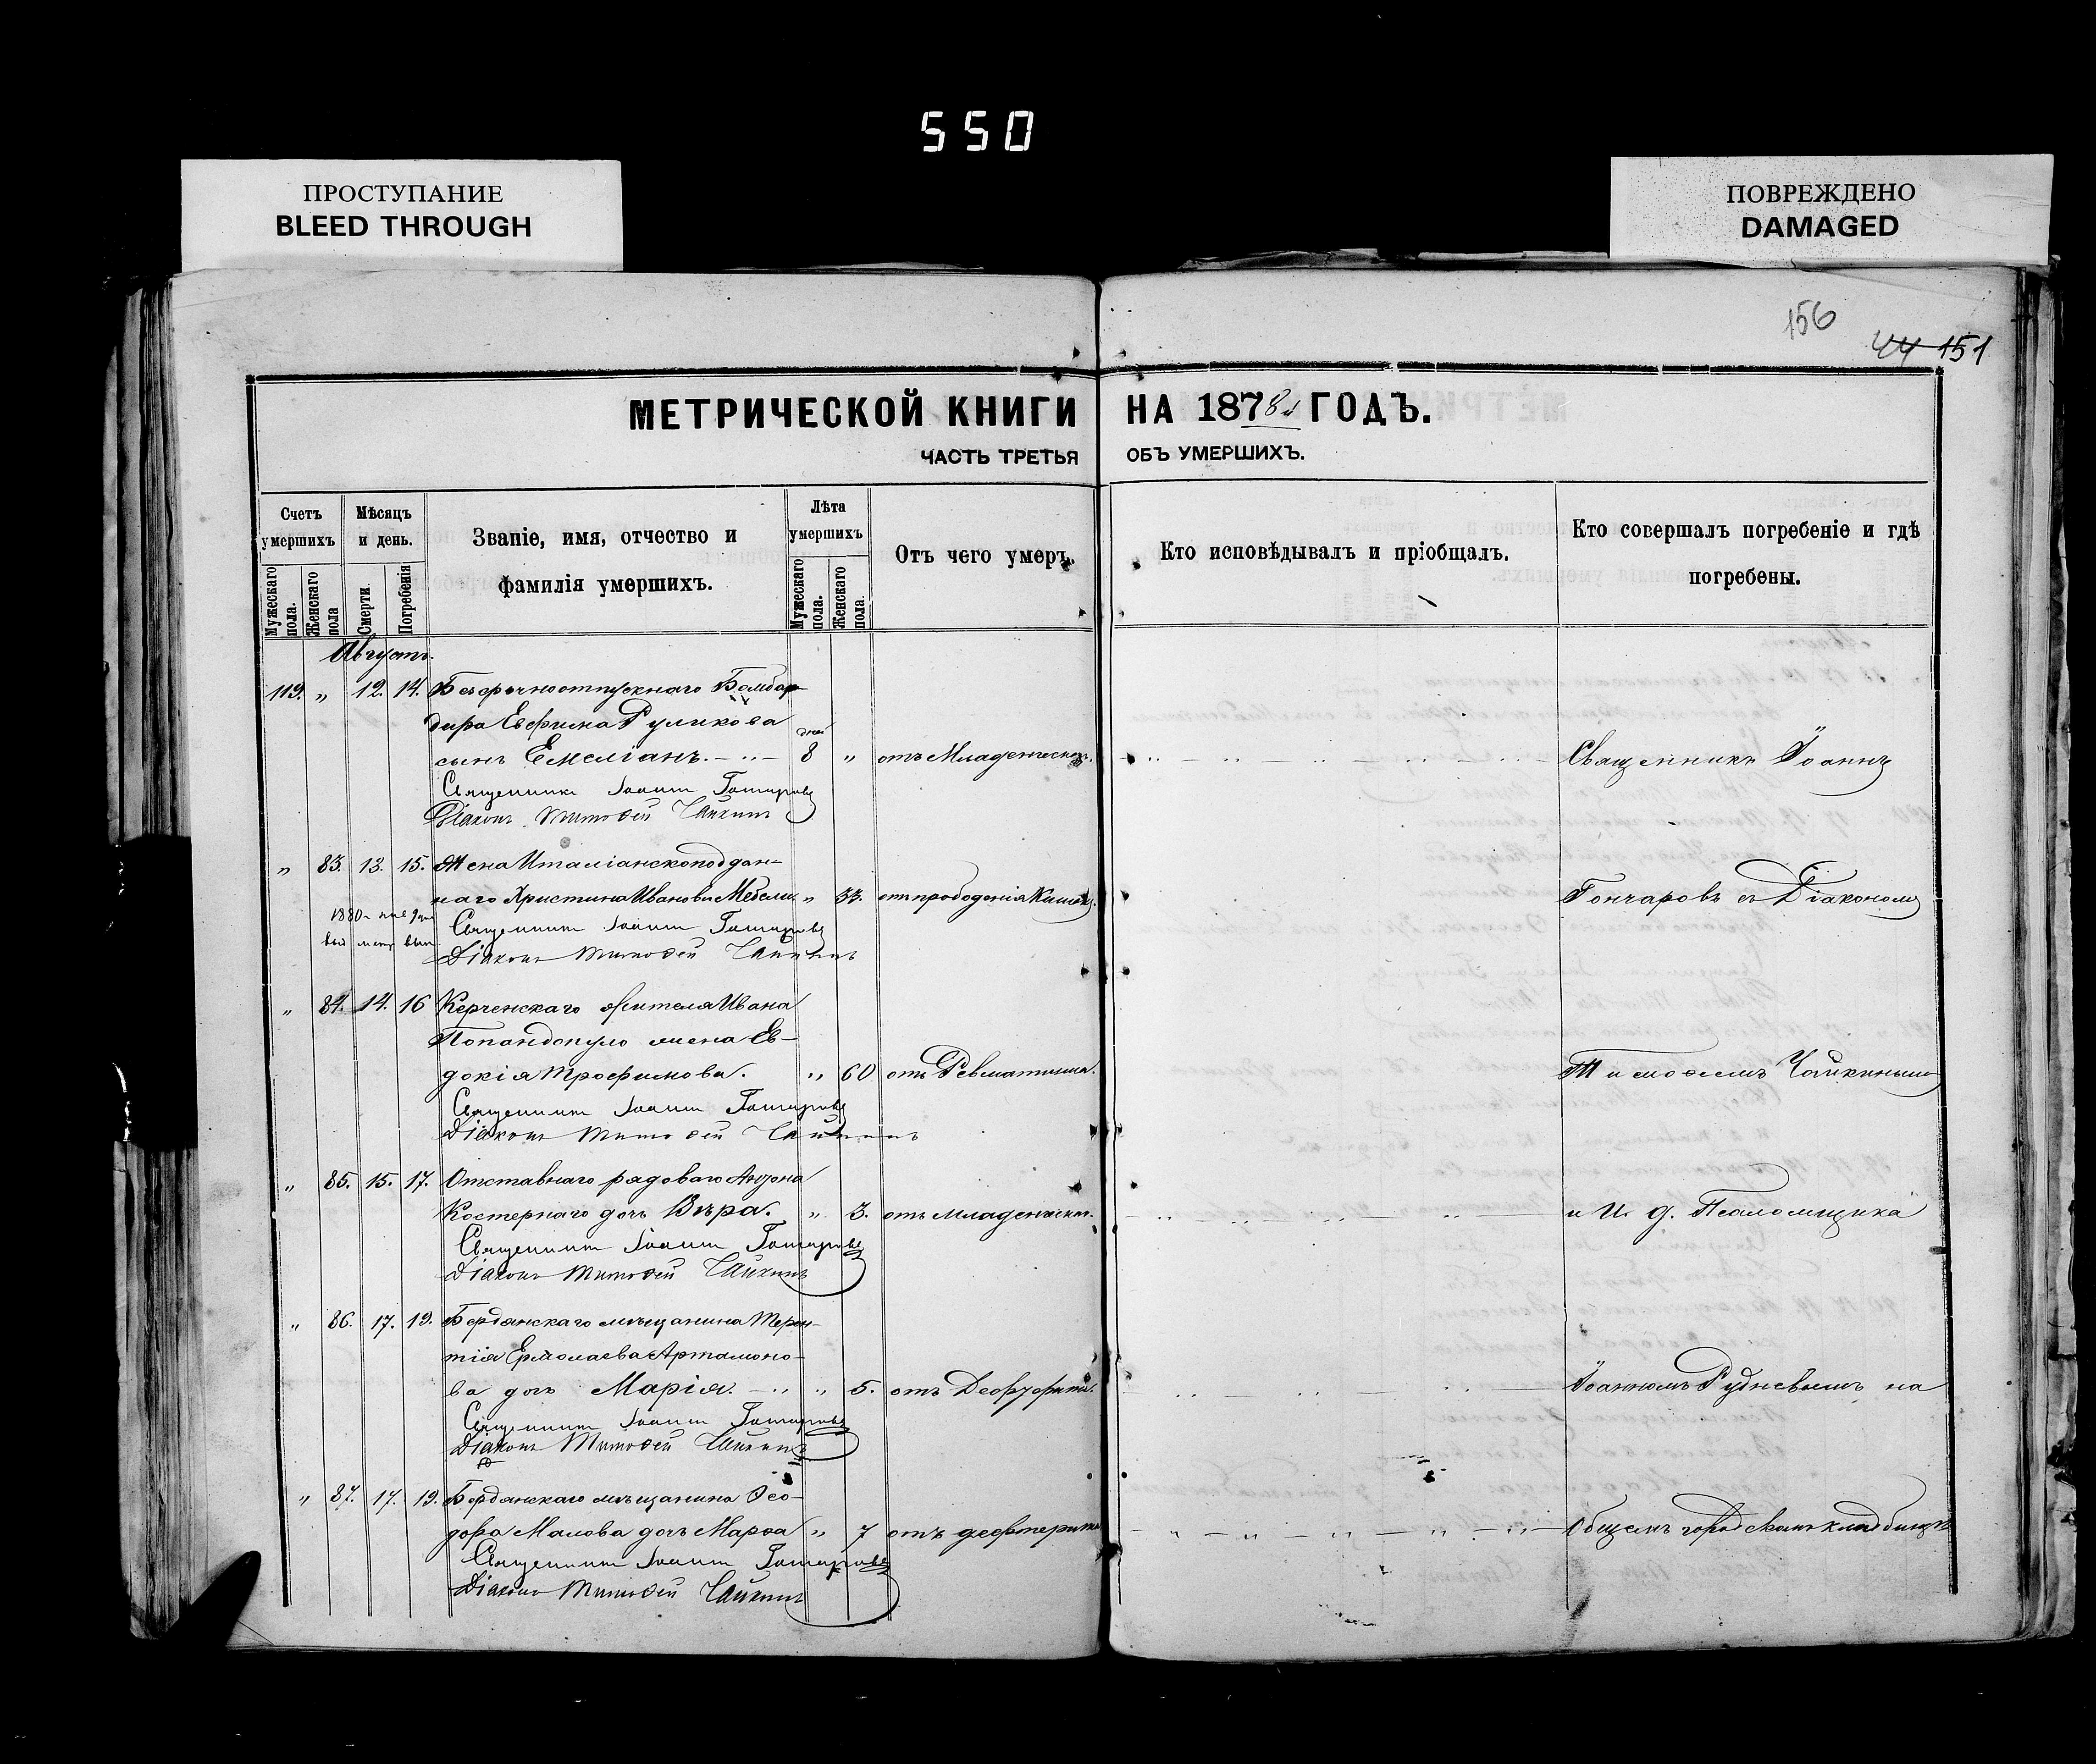 550
ПРОСТУПАНИЕ
BLEED THROUGH
ПОВРЕЖДЕНО
DAMAGED
156
44 151
МЕТРИЧЕСКОЙ КНИГИ НА 1878 ГОДЪ.
ЧАСТЬ ТРЕТЬЯ ОБЪ УМЕРШИХЪ.
Счетъ умершихъ
Мужескаго пола.
Женскаго пола
Мѣсяцъ и день.
Смерти.
Погребенія
Званіе, имя, отчество и фамилія умершихъ.
Лѣта умершихъ
Мужескаго пола.
Женскаго пола.
Отъ чего умеръ.
Кто исповѣдывалъ и пріобщалъ.
Кто совершалъ погребеніе и гдѣ погребены.
Августъ.
119. " 12. 14. Безсрочноотпускнаго Бомбар-
дира Евфима Руликова
дней
сынъ Емеліанъ. 8 " отъ Младенческой. Священникъ Іоаннъ
Священникъ Іоаннъ Гончаровъ
Діаконъ Тимофей Чайкинъ
" 83. 13. 15. Жена Италіанскоподдан-
наго Христина Иванова " 33. Гончаровъ съ Діакономъ
Священникъ Іоаннъ Гончаровъ
Діаконъ Тимофей Чайкинъ
" 84. 14. 16 Керченскаго жителя Ивана
Попандопуло жена Ев-
докія Трофимова. " 60 отъ Ревматизма. Тимофеемъ Чайкинымъ
Священникъ Іоаннъ Гончаровъ
Діаконъ Тимофей Чайкинъ
" 85. 15. 17. Отставнаго рядоваго
Костернаго дочь Вѣра. " 3. отъ младенческой. и И. д. Псаломщика
Священникъ Іоаннъ Гончаровъ
Діаконъ Тимофей Чайкинъ
" 86. 17. 19. Бердянскаго мѣщанина Терен-
тія Ермолаева Артамоно-
ва дочь Марія. " 5. отъ Іоанномъ Рудневымъ на
Священникъ Іоаннъ Гончаровъ
Діаконъ Тимофей Чайкинъ
" 87. 17. 19. Бердянскаго мѣщанина Ѳео-
дора Малова дочь Марѳа " 7 отъ Общемъ городскомъ кладбищѣ
Священникъ Іоаннъ Гончаровъ
Діаконъ Тимофей Чайкинъ